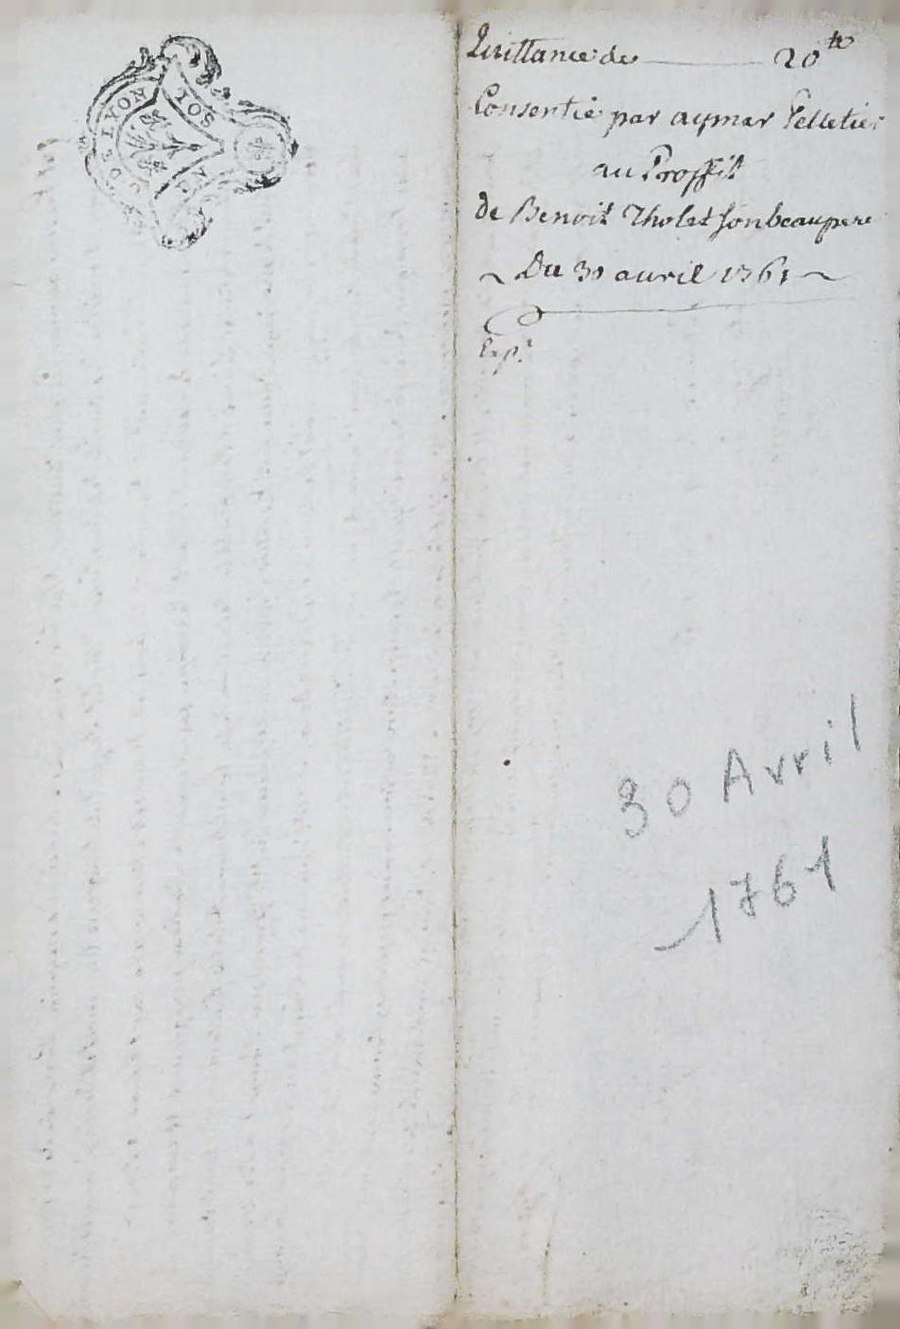 G. DE LYON
CINQ SOLS
Quittance de 20 tt
Consentie par aymar Pelletier
au Proffit
de Benoit Tholet son beaupere
Du 30 avril 1761
Exp.
30 Avril
1761